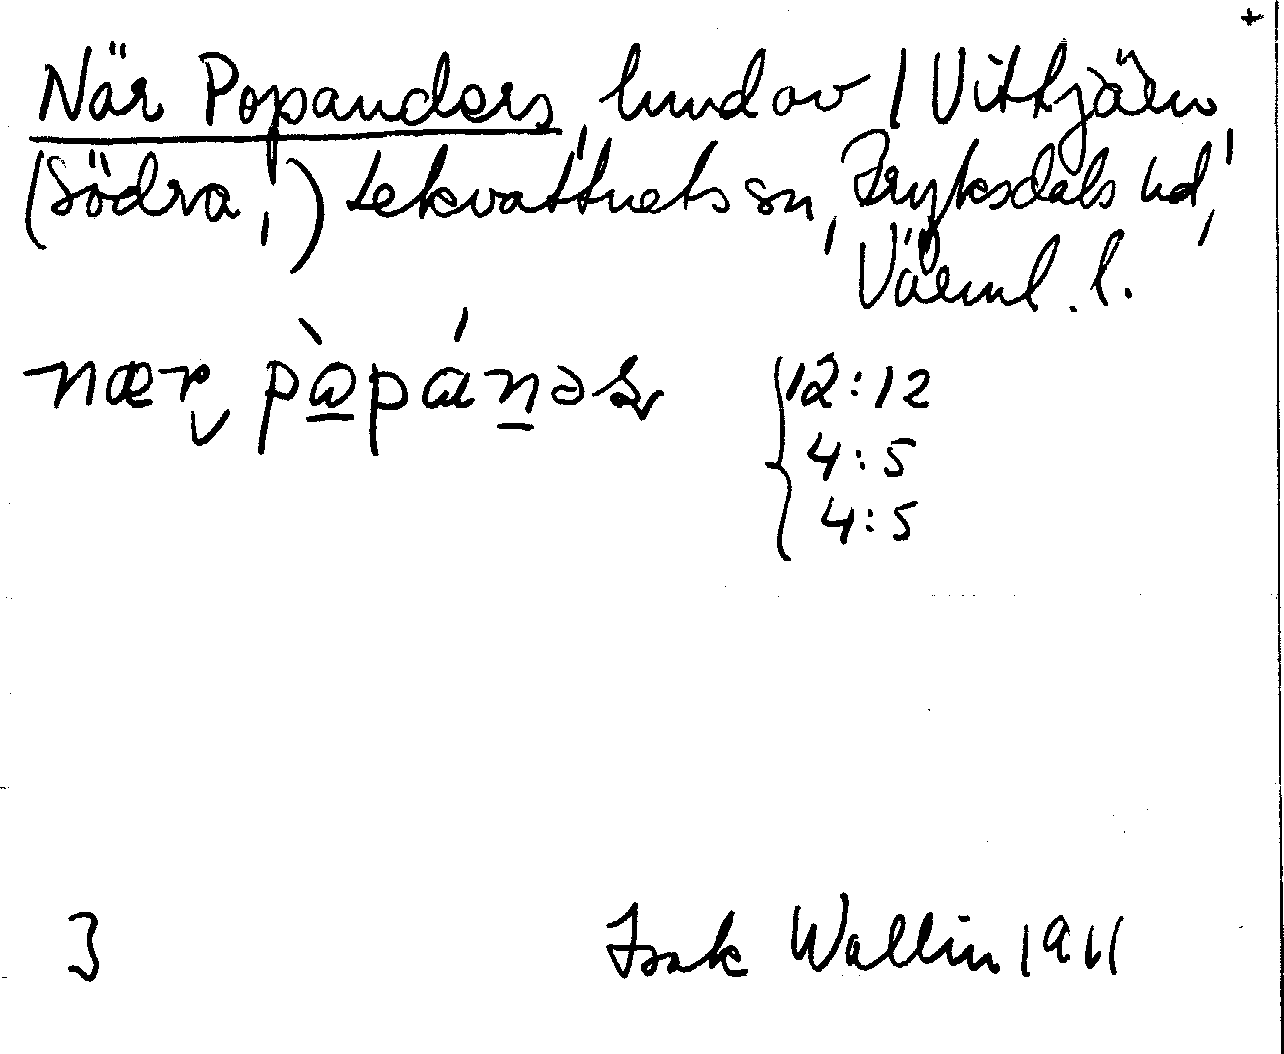 +
När Popanders, hmd av 1 Vittjärn
(Södra,,) Lekvattnets sn, Fryksdals hd,
Värml. l.
nær pòpánəs
12:12
4:5
4:5
3
Isak Wallin 1911